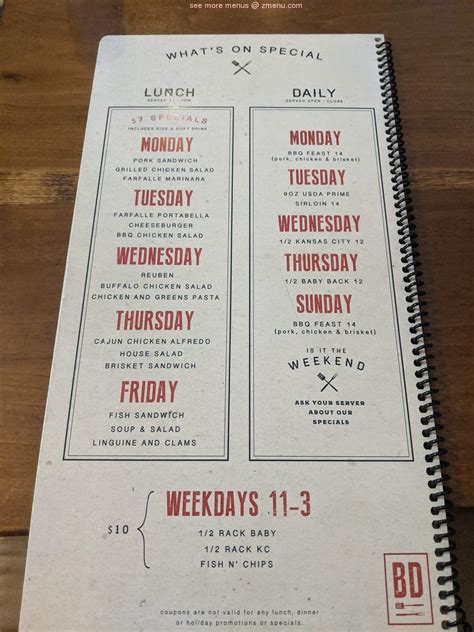 see more menus @ zmenu.com
WHAT'S ON SPECIAL
LUNCH
DAILY
SERVED OPEN - CLOSE
$7 SPECIALS
INCLUDES SIDE & SOFT DRINK
MONDAY
PORK SANDWICH
GRILLED CHICKEN SALAD
FARFALLE MARINARA
TUESDAY
FARFALLE PORTABELLA
CHEESEBURGER
BBQ CHICKEN SALAD
WEDNESDAY
REUBEN
BUFFALO CHICKEN SALAD
CHICKEN AND GREENS PASTA
THURSDAY
CAJUN CHICKEN ALFREDO
HOUSE SALAD
BRISKET SANDWICH
FRIDAY
FISH SANDWICH
SOUP & SALAD
LINGUINE AND CLAMS
MONDAY
BBQ FEAST 14
(pork, chicken & brisket)
TUESDAY
9OZ USDA PRIME
SIRLOIN 14
WEDNESDAY
1/2 KANSAS CITY 12
THURSDAY
1/2 BABY BACK 12
SUNDAY
BBQ FEAST 14
(pork, chicken & brisket)
IS IT THE
WEEKEND
ASK YOUR SERVER
ABOUT OUR
SPECIALS
WEEKDAYS 11-3
$10
1/2 RACK BABY
1/2 RACK KC
FISH N' CHIPS
BD
coupons are not valid for any lunch, dinner
or holiday promotions or specials.